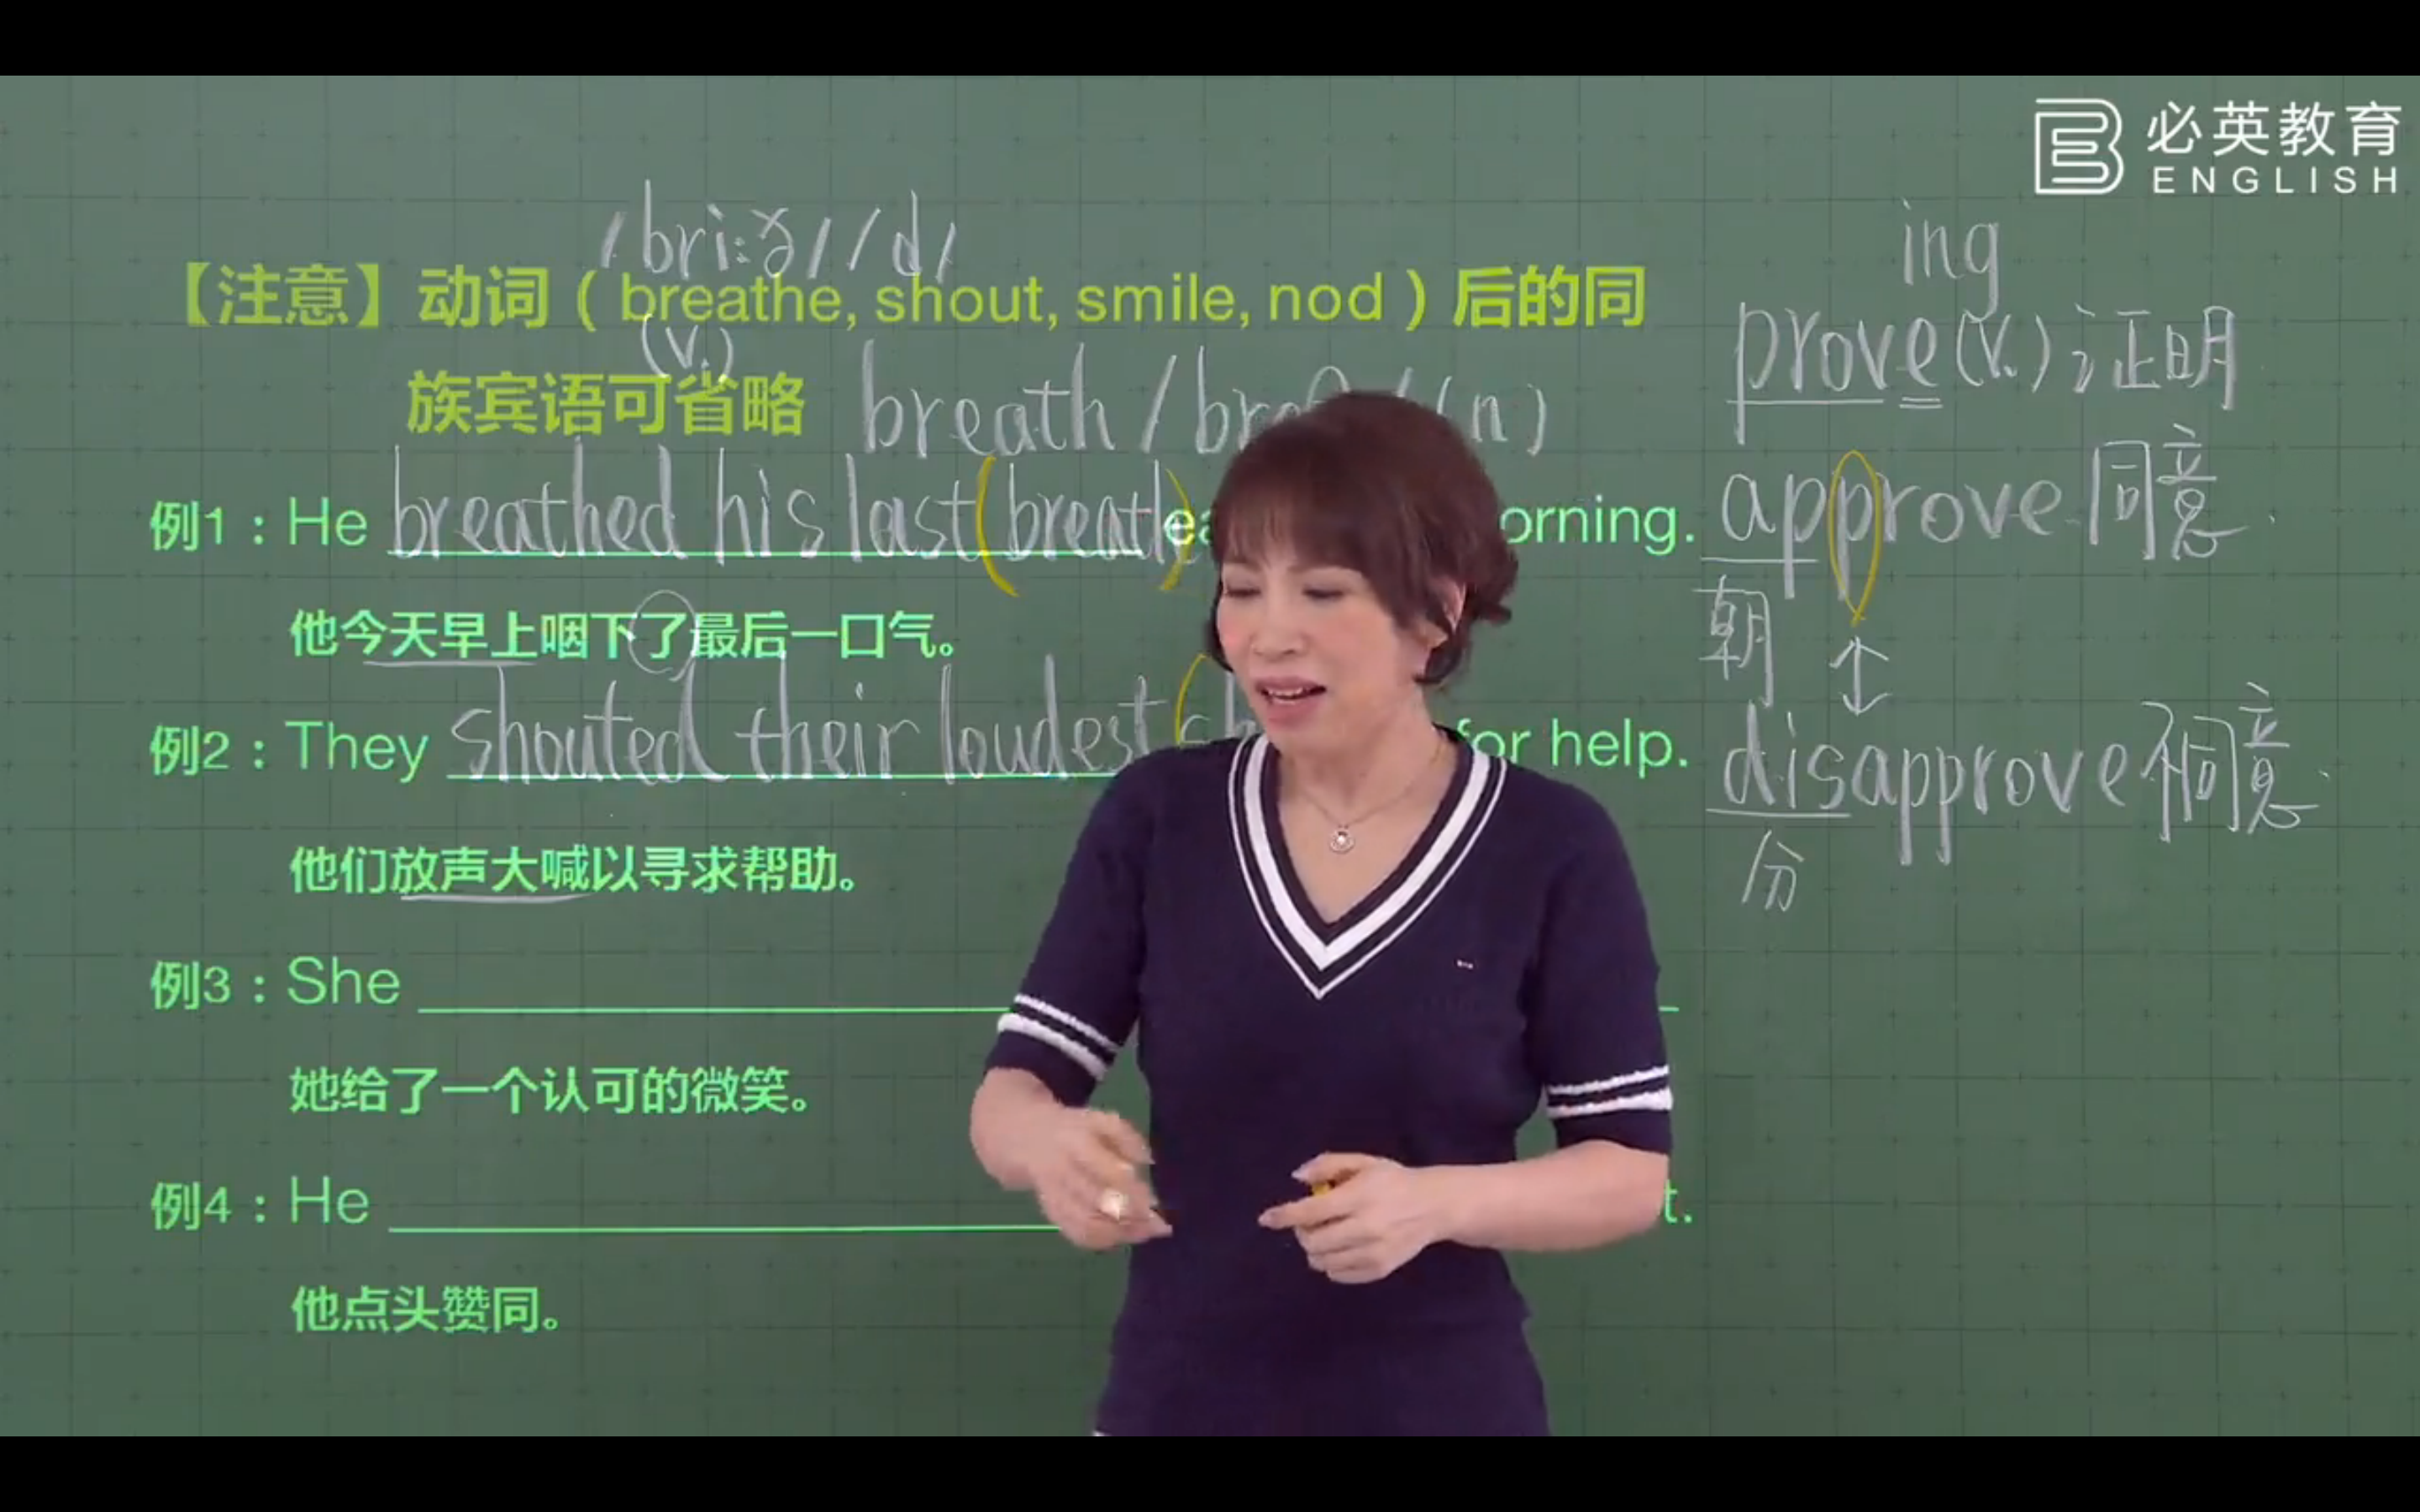 必英教育
ENGLISH
/bri:ð/ /d/
【注意】动词（breathe, shout, smile, nod）后的同
(v.)
族宾语可省略
breath / (n)
例1：He breathed his last (breath) orning.
他今天早上咽下了最后一口气。
例2：They shouted their loudest for help.
他们放声大喊以寻求帮助。
例3：She
她给了一个认可的微笑。
例4：He t.
他点头赞同。
ing
prove (v.) 证明
approve 同意
朝
↕
disapprove 不同意
分